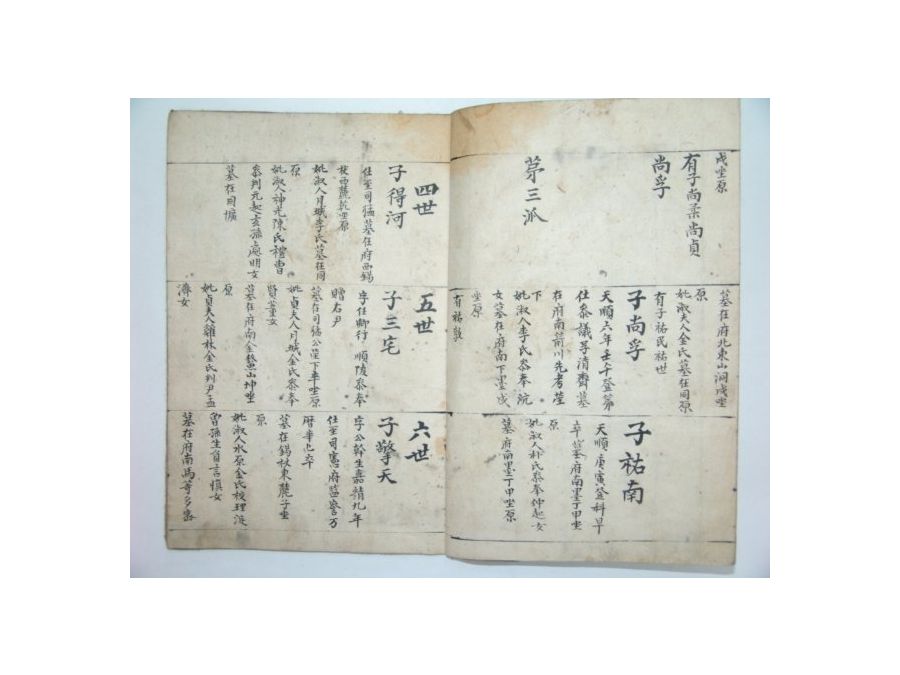 戌坐原
有子尚柔尚貞
尚孚
第三派
墓在府北東山洞戌坐
原
妣淑夫人金氏墓在同原
有子祐民祐世
子尚孚
天順六年壬午登第
仕參議號清齋墓
在府南箭川先考塋
下
妣淑人李氏參奉
女墓在府南下墨戌
坐原
有祐
子祐南
天順庚寅登科早
卒墓府南墨丁甲坐
原
妣淑人朴氏參奉仲起女
墓府南墨丁甲坐原
四世
子得河
任至司猛墓在府西錫
杖西麓乾坐原
妣淑人月城李氏墓在同
原
妣淑人神光陳氏禮曹
參判玄孫處明女
墓在同壙
五世
子三宅
字任卿行順陵參奉
贈右尹
墓在司猛公塋下辛坐原
妣貞夫人月城金氏參奉
賢董女
墓在府南金鰲山坤坐
原
妣貞夫人雞林金氏判尹孟
濟女
六世
子擎天
字公幹生嘉靖九年
任至司憲府監察万
曆辛七卒
墓在錫杖東麓子坐
原
妣淑人水原金氏校理
曾孫生員言慎女
墓在府南馬等